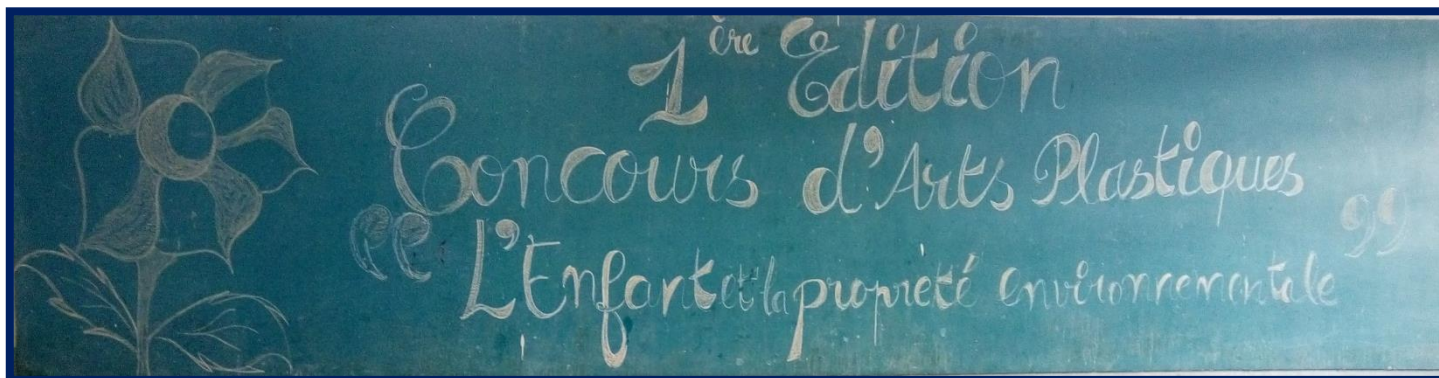 1ère Edition
Concours d'Arts Plastiques
"L'Enfant et la propriété environnementale"